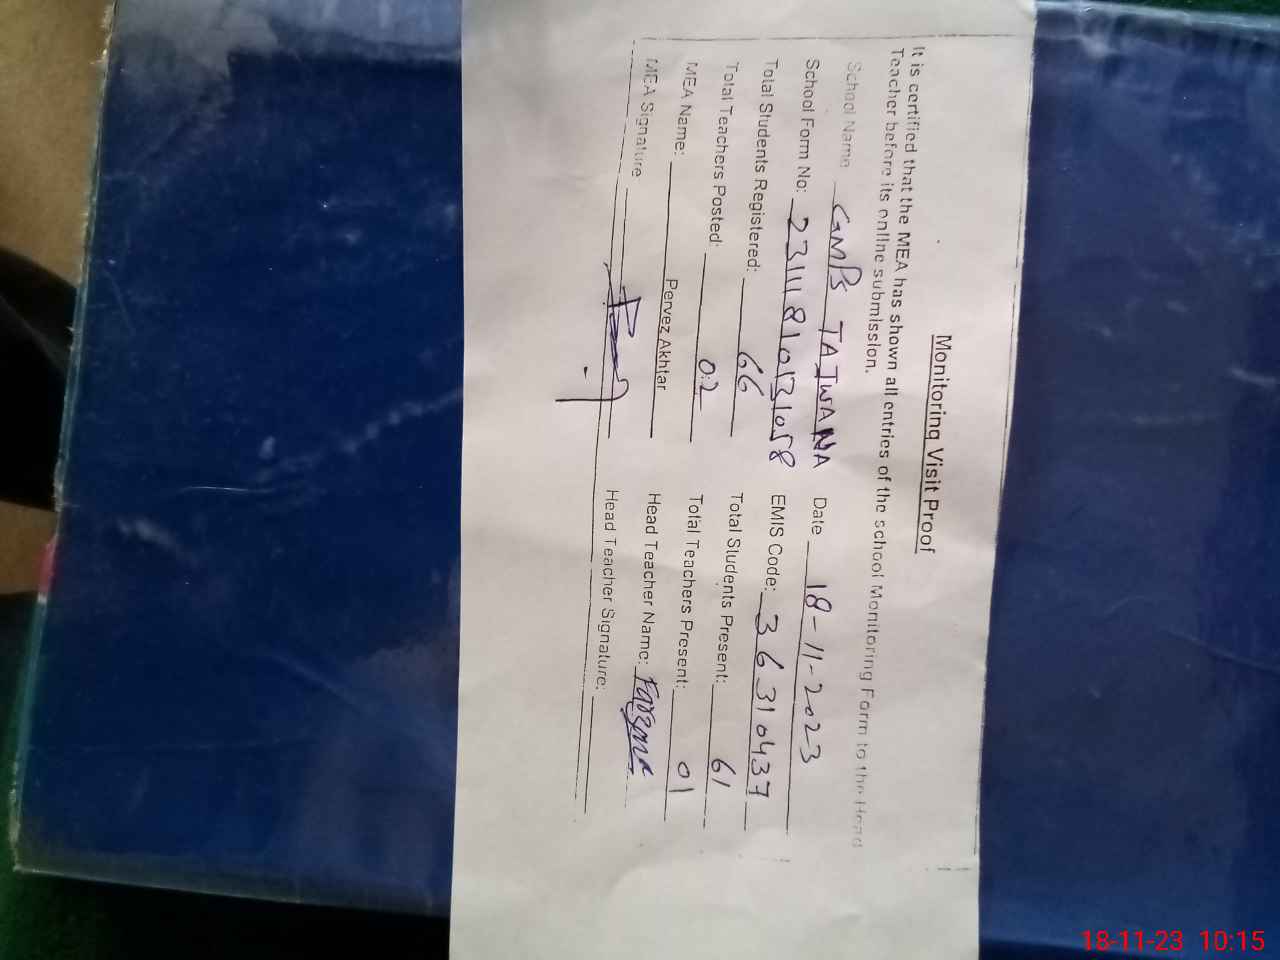 Monitoring Visit Proof
It is certified that the MEA has shown all entries of the school Monitoring Form to the Head
Teacher before its online submission.
School Name GMPS TAJWANA Date 18-11-2023
School Form No: 23111810131058 EMIS Code: 36310437
Total Students Registered: 66 Total Students Present: 61
Total Teachers Posted: 02 Total Teachers Present: 01
MEA Name: Pervez Akhtar Head Teacher Name: Farzana
MEA Signature Head Teacher Signature:
18-11-23 10:15